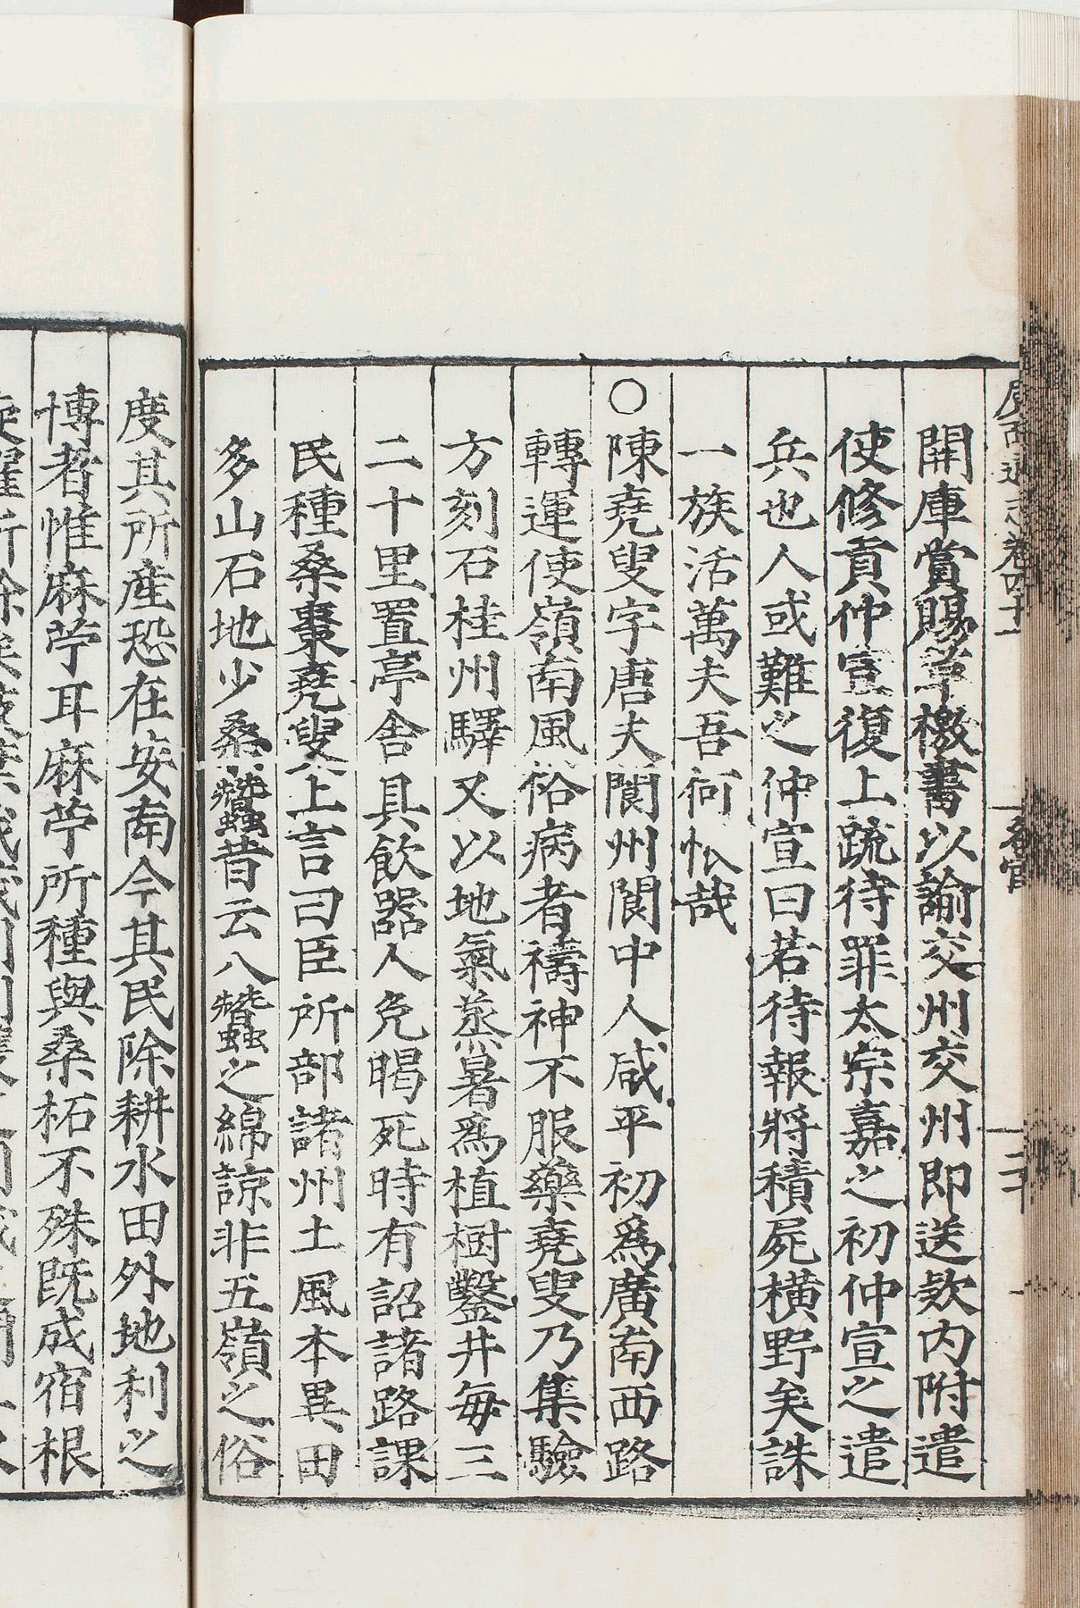 廣西通志卷四十一 名宦 二十
開庫賞賜草檄書以諭交州交州即送欵内附遣
使修貢仲宣復上疏待罪太宗嘉之初仲宣之遣
兵也人或難之仲宣曰若待報將積屍橫野矣誅
一族活萬夫吾何恨哉
○陳堯叟字唐夫閬州閬中人咸平初爲廣南西路
轉運使嶺南風俗病者禱神不服藥堯叟乃集驗
方刻石桂州驛又以地氣蒸暑爲植樹鑿井每三
二十里置亭舍具飲器人免暍死時有詔諸路課
民種桑棗堯叟上言曰臣所部諸州土風本異田
多山石地少桑蠶昔云八蠶之綿諒非五嶺之俗
度其所産恐在安南今其民除耕水田外地利之
博者惟麻苧耳麻苧所種與桑柘不殊既成宿根